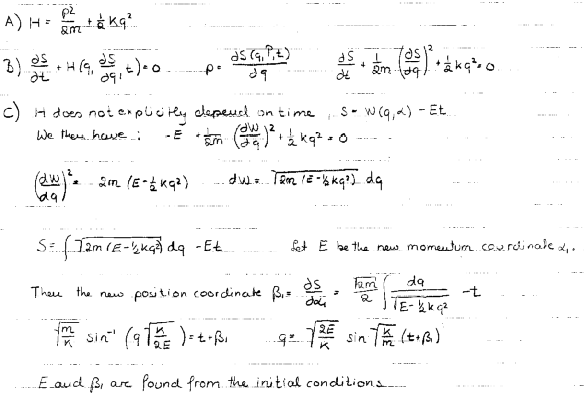 A) H = p²/2m + ½ Kq²
B) ∂S/∂t + H(q, ∂S/∂q, t) = 0 p = ∂S(q,P,t)/∂q ∂S/∂t + 1/2m (∂S/∂q)² + ½ kq² = 0
C) H does not explicitly depend on time, S = W(q,α) - Et
We then have: -E + 1/2m (∂W/∂q)² + ½ kq² = 0
(∂W/∂q)² = 2m (E - ½ Kq²) dW = √(2m (E - ½ kq²)) dq
S = ∫ √(2m (E - ½ kq²)) dq - Et Let E be the new momentum coordinate α₁.
Then the new position coordinate β₁ = ∂S/∂α₁ = √(2m)/2 ∫ dq/√(E - ½ kq²) - t
√(m/K) sin⁻¹ (q √(K/2E)) = t + β₁ q = √(2E/K) sin √(K/m) (t + β₁)
E and β₁ are found from the initial conditions